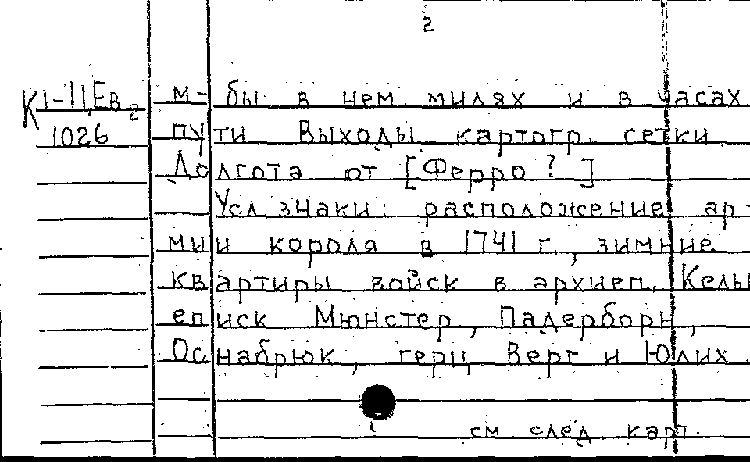 2
К1-11,Ев2 м-бы в нем милях и в часах
1026 пути Выходы картогр. сетки
Долгота от [Ферро? ]
Усл знаки: расположение ар-
мии короля в 1741 г., зимние
квартиры войск в архиеп. Кельн
еписк Мюнстер, Падерборн,
Оснабрюк, герц Берг и Юлих
см след карт.